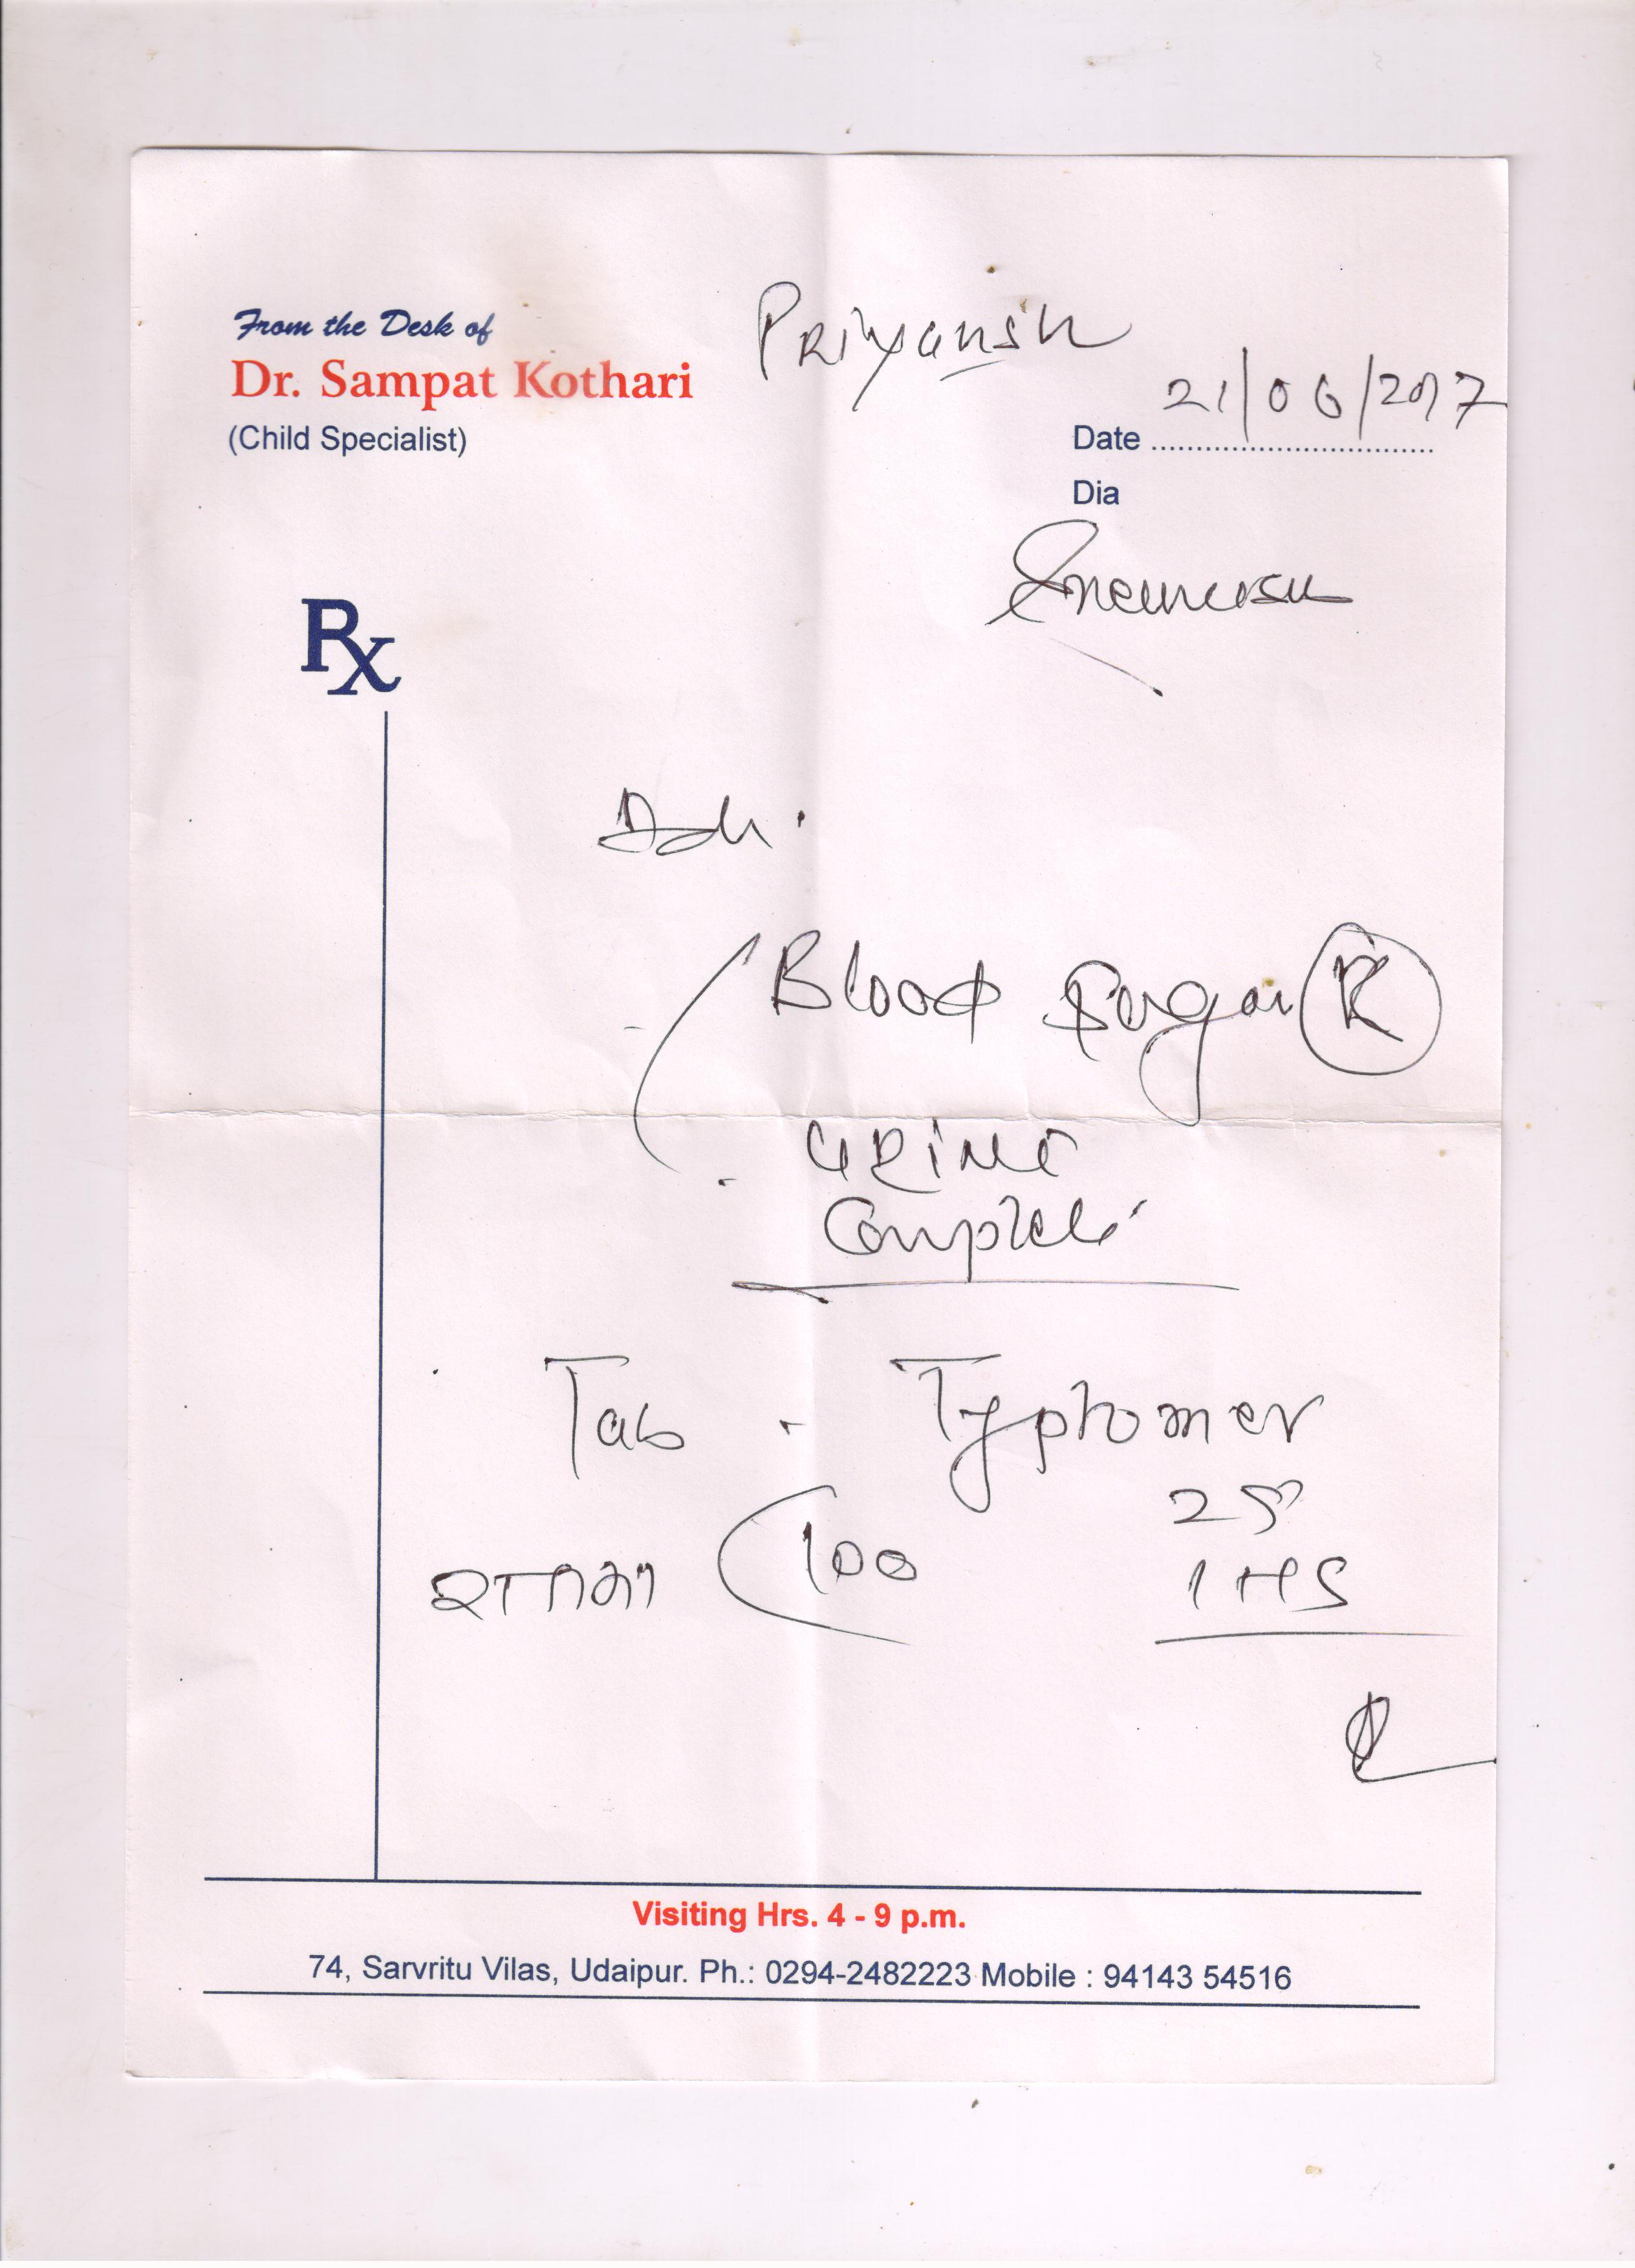 From the Desk of
Dr. Sampat Kothari
(Child Specialist)
Priyansh
21/06/2017
Date ................................
Dia
Rx
Blood Sugar R
URINE
Complete
Tab - Typtomer
25
100
1 HS
Visiting Hrs. 4 - 9 p.m.
74, Sarvritu Vilas, Udaipur. Ph.: 0294-2482223 Mobile : 94143 54516